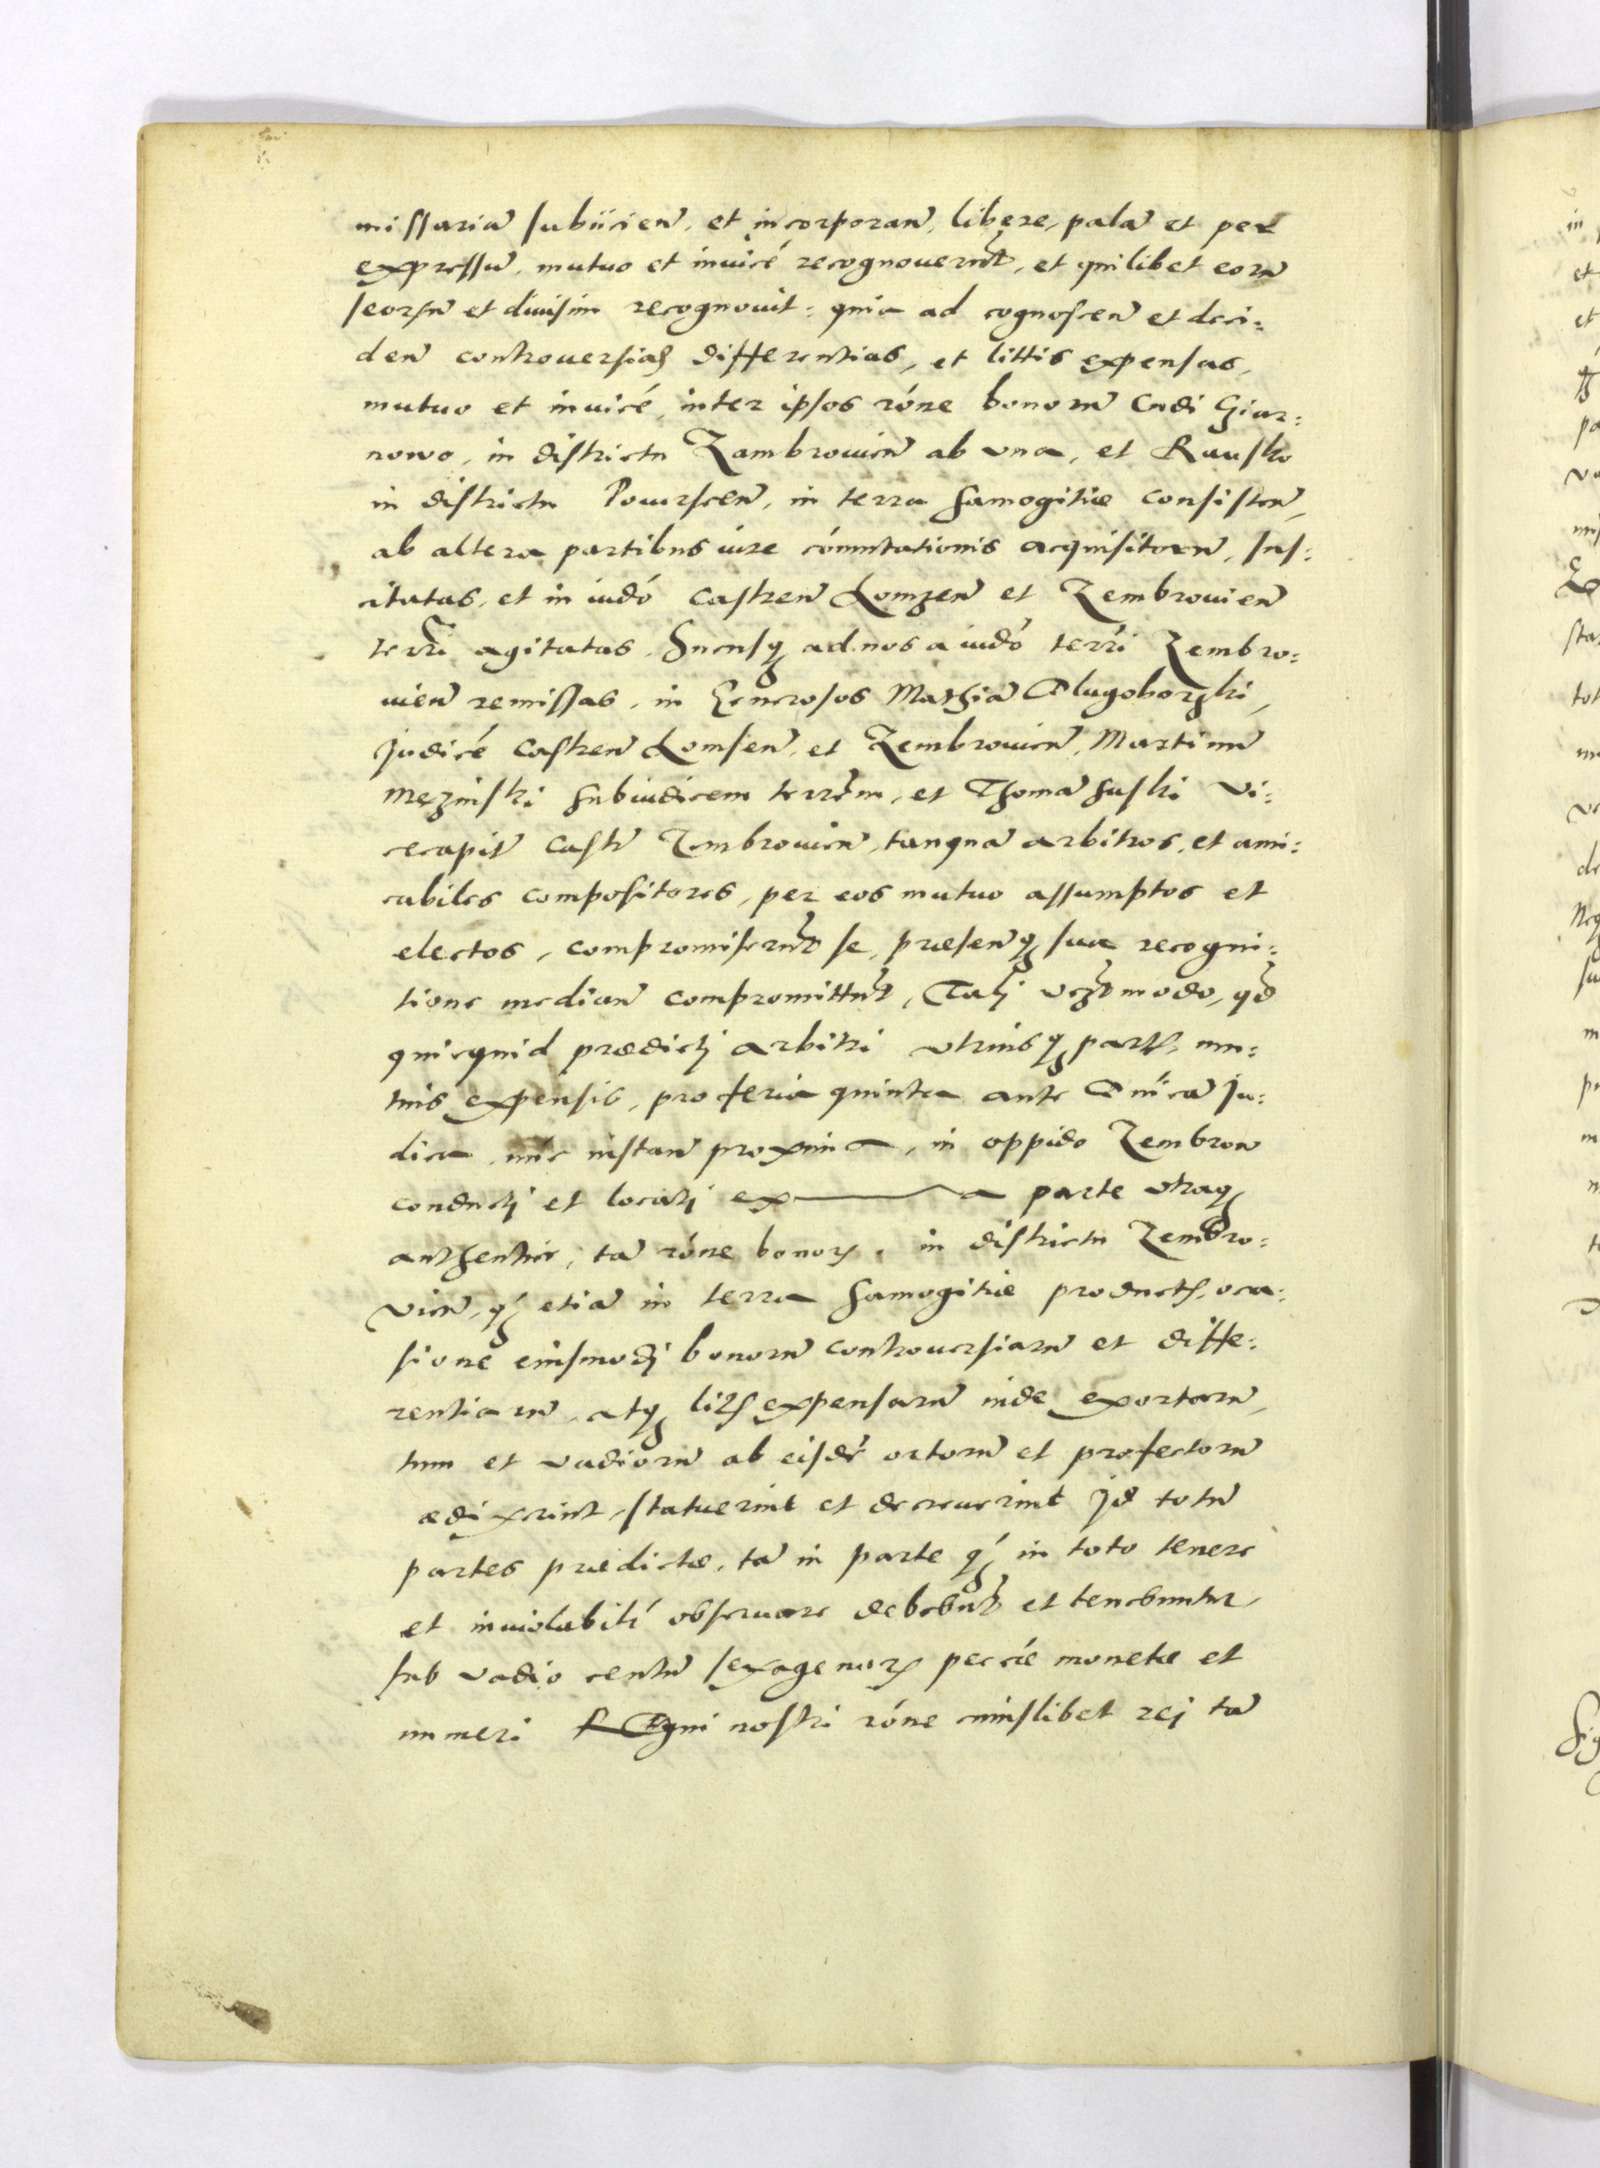 missariam subiicien, et incorporan, libere, palam et per
expressum, mutuo et invicé recognoverunt, et quilibet eorum
seorsum et divisim recognovit: quia ad cognoscen et deci:
den controversias differentias, et littis expensas,
mutuo et invicé, inter ipsos róne bonorum Czar:
nowo, in districtu Zambrovien ab una, et
in districtu, in terra Samogitiæ consisten,
ab altera partibus iure cómutationis acquisitorum, sus:
citatas, et in iudó Castren Lomzen et Zembrovien
terri agitatas, hucusq ad nos a iudó terri Zembro:
vien remissas, in Generosos Mathiam Dlugoborzki,
Judicé Castren Lomsen, et Zembrovien, Martinum
Mezinski Subiudicem terrem, et Thomam Suski Vi:
cecapit Castr Zembrovien, tanquam arbitros, et ami:
cabiles compositores, per eos mutuo assumptos et
electos, compromiserunt se, præsenq sua recogni:
tione median compromittunt, Tali vezt modo, qd
quicquid prædicti arbitri utriusq partis, mu:
tuis expensis, pro feria quinta ante Dnicam Ju:
dica, núc instan proxima, in oppido Zembrow
conducti et locati ex a parte utraq
authentice, tam róne bonor, in districtu Zembro:
vien, q etiam in terra Samogitiæ productis, oca:
sione eiusmodi bonorum controversiarum et diffe:
rentiarum, atq litis expensarum inde exortarum,
tum et vadiorum ab eisdé ortorum et profectorum
ædixerint, statuerint et decreverint Jd totum
partes prædictæ, tam in parte q in toto tenere
et inviolabilr observare debebunt et tenebuntur,
sub vadio centum sexagenar peccie monetæ et
numeri Regni nostri róne cuiuslibet rei tam